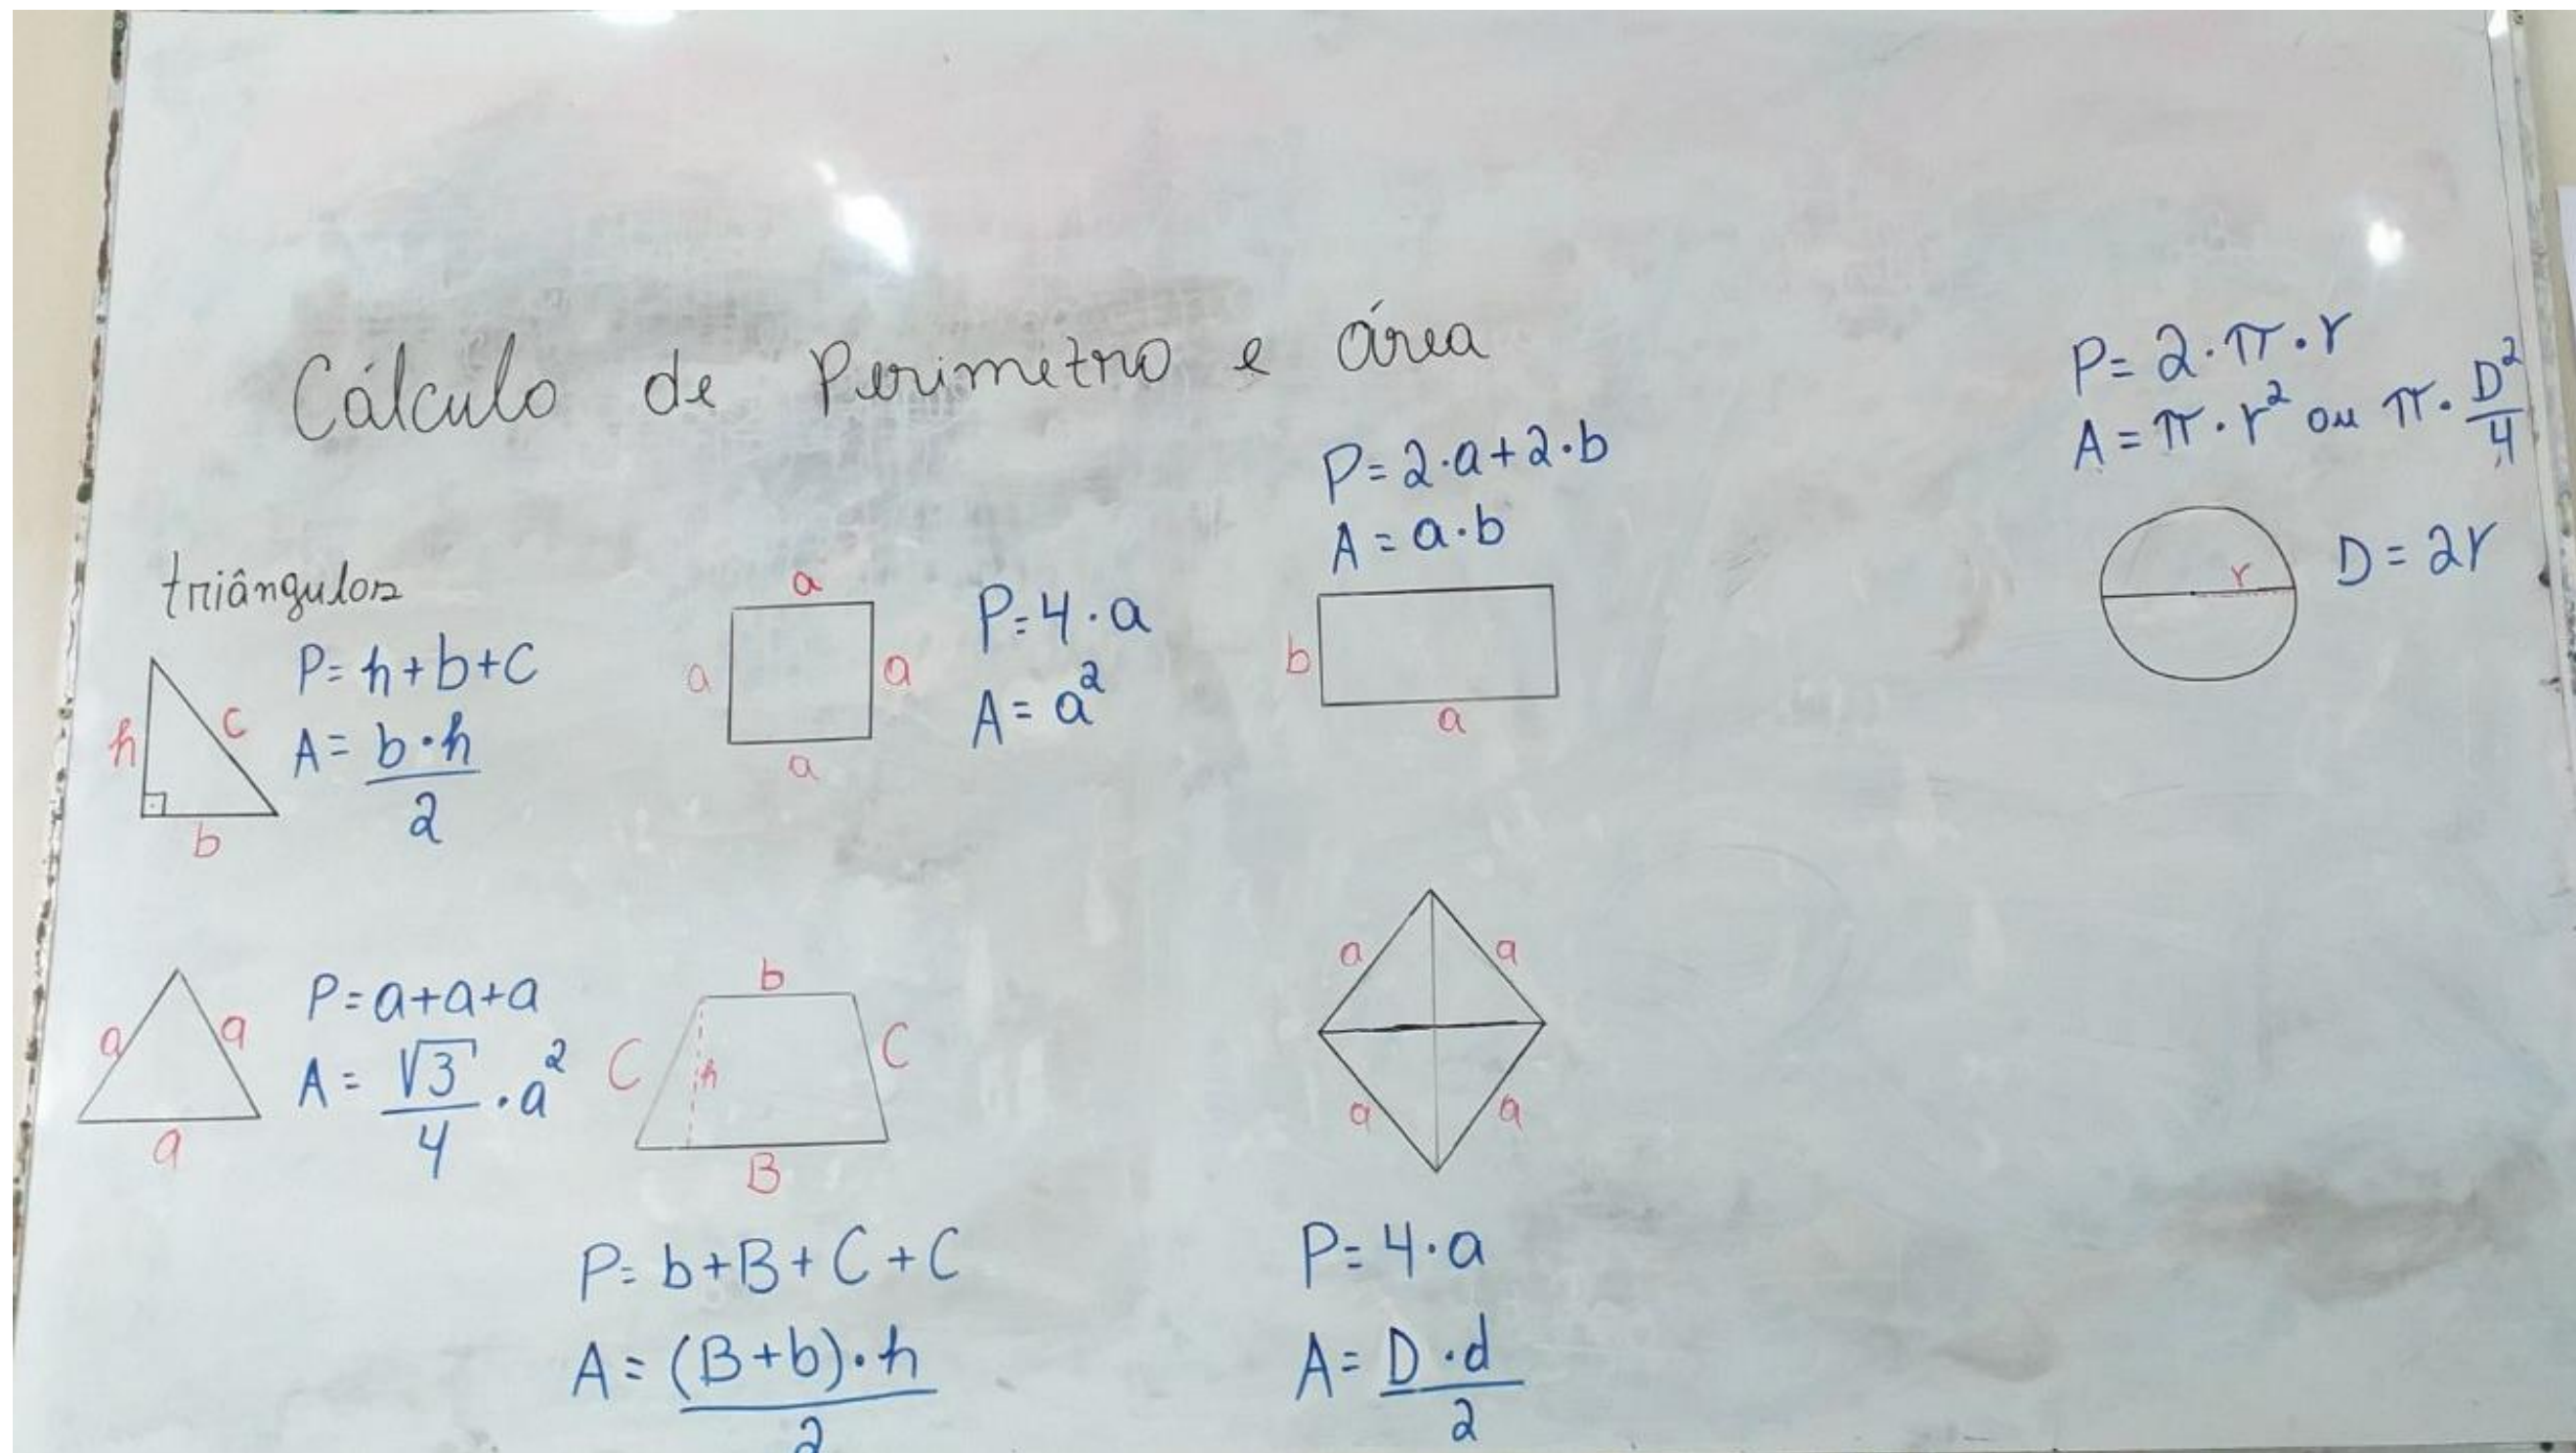 Cálculo de Perimetro e área
triângulos
h
c
b
P= h+b+C
A= b·h
2
a
a
a
a
P=4·a
A= a²
P=2·a+2·b
A=a·b
b
a
P=2·π·r
A=π·r² ou π·D²
4
r
D=2r
a
a
a
P=a+a+a
A= √3 ·a²
4
b
C
h
C
B
P= b+B+C+C
A=(B+b)·h
2
a
a
a
a
P=4·a
A= D·d
2